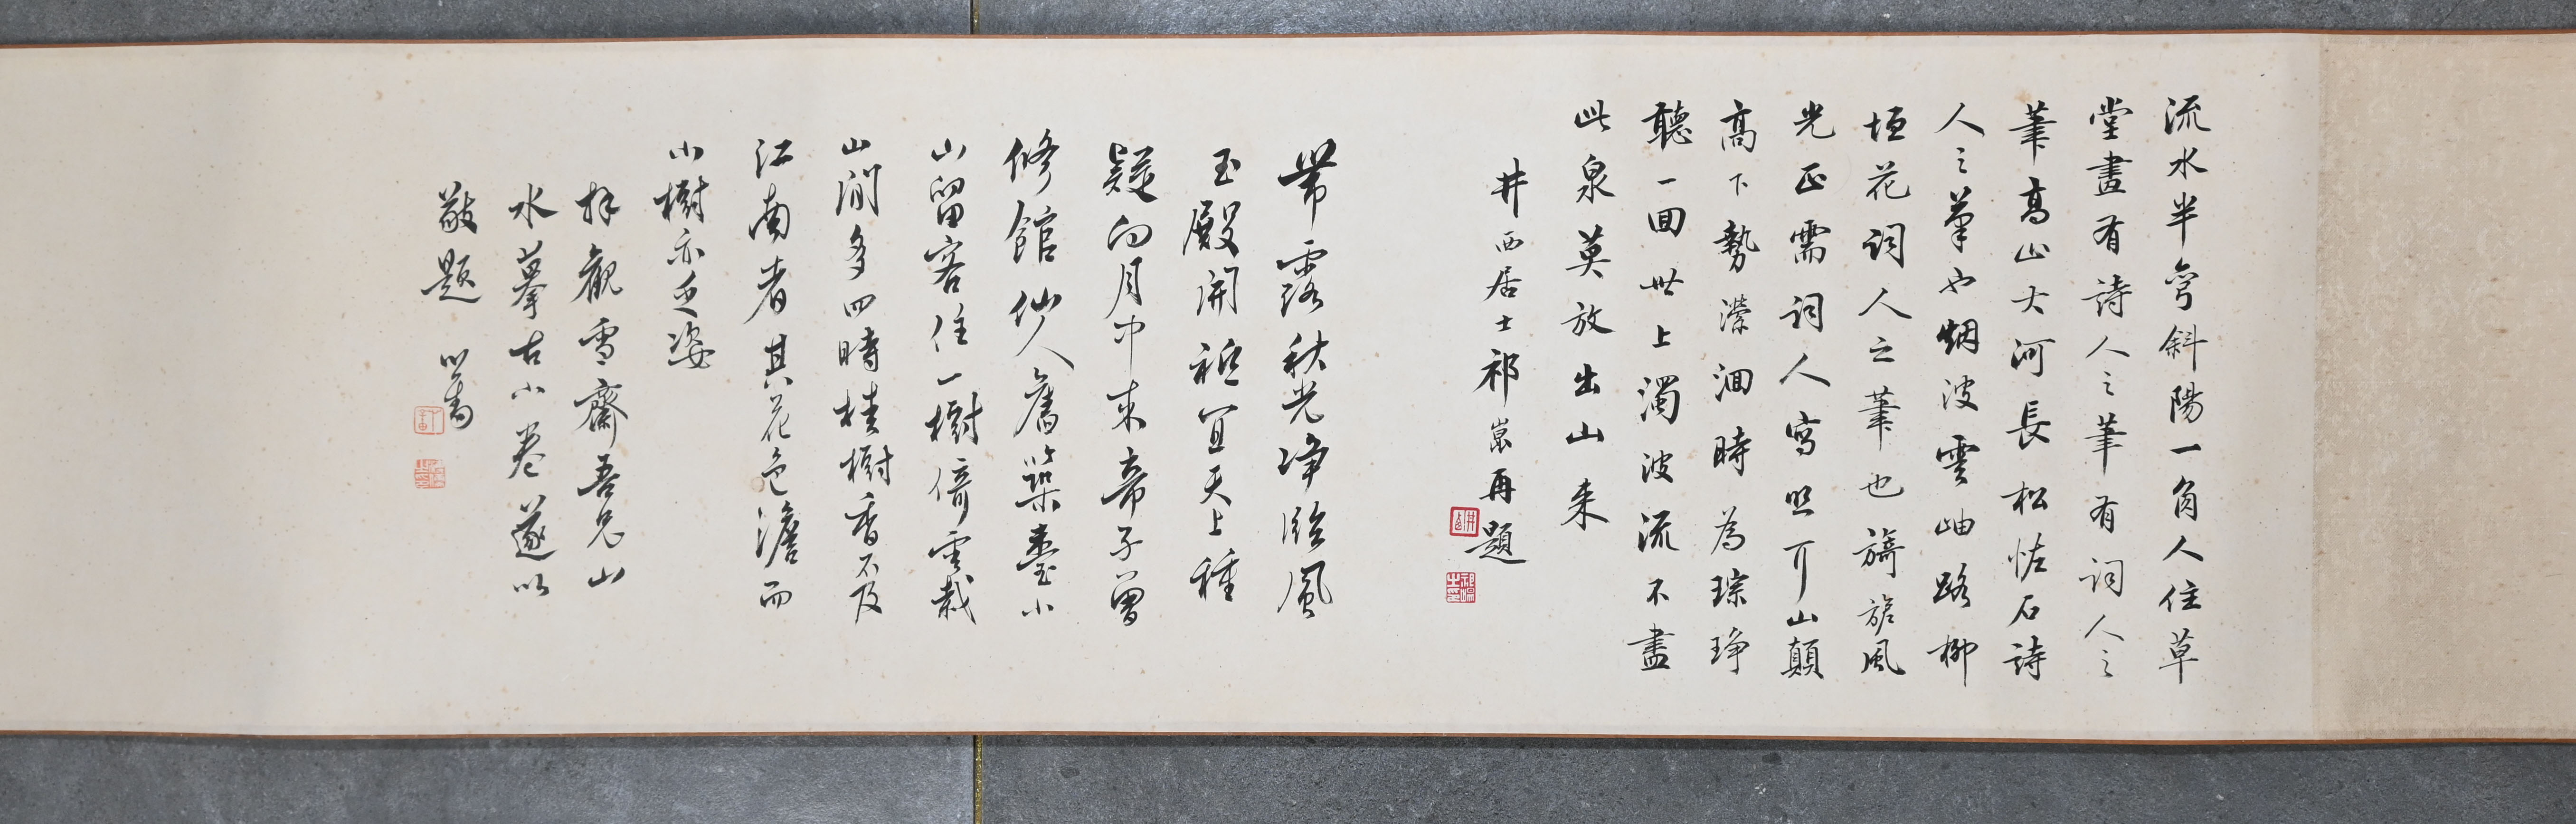 流水半弯斜陽一角人住草
堂畫有詩人之筆有詞人之
筆高山大河長松怪石詩
人之筆也烟波雲岫路柳
垣花詞人之筆也旖旎風
光正需詞人寫照可山顛
高下勢瀠洄時為琮琤
聽一回世上濁波流不盡
此泉莫放出山来
井西居士祁崑再題
帶露秋光净臨風
玉殿開祗宜天上種
疑向月中来帝子曾
修館仙人舊築臺小
山留客住一樹倚雲栽
山間多四時桂樹香不及
江南者其花色澹而
小樹亦乏姿
拜觀雪齋吾兄山
水摹古小卷遂以
敬題 心畬